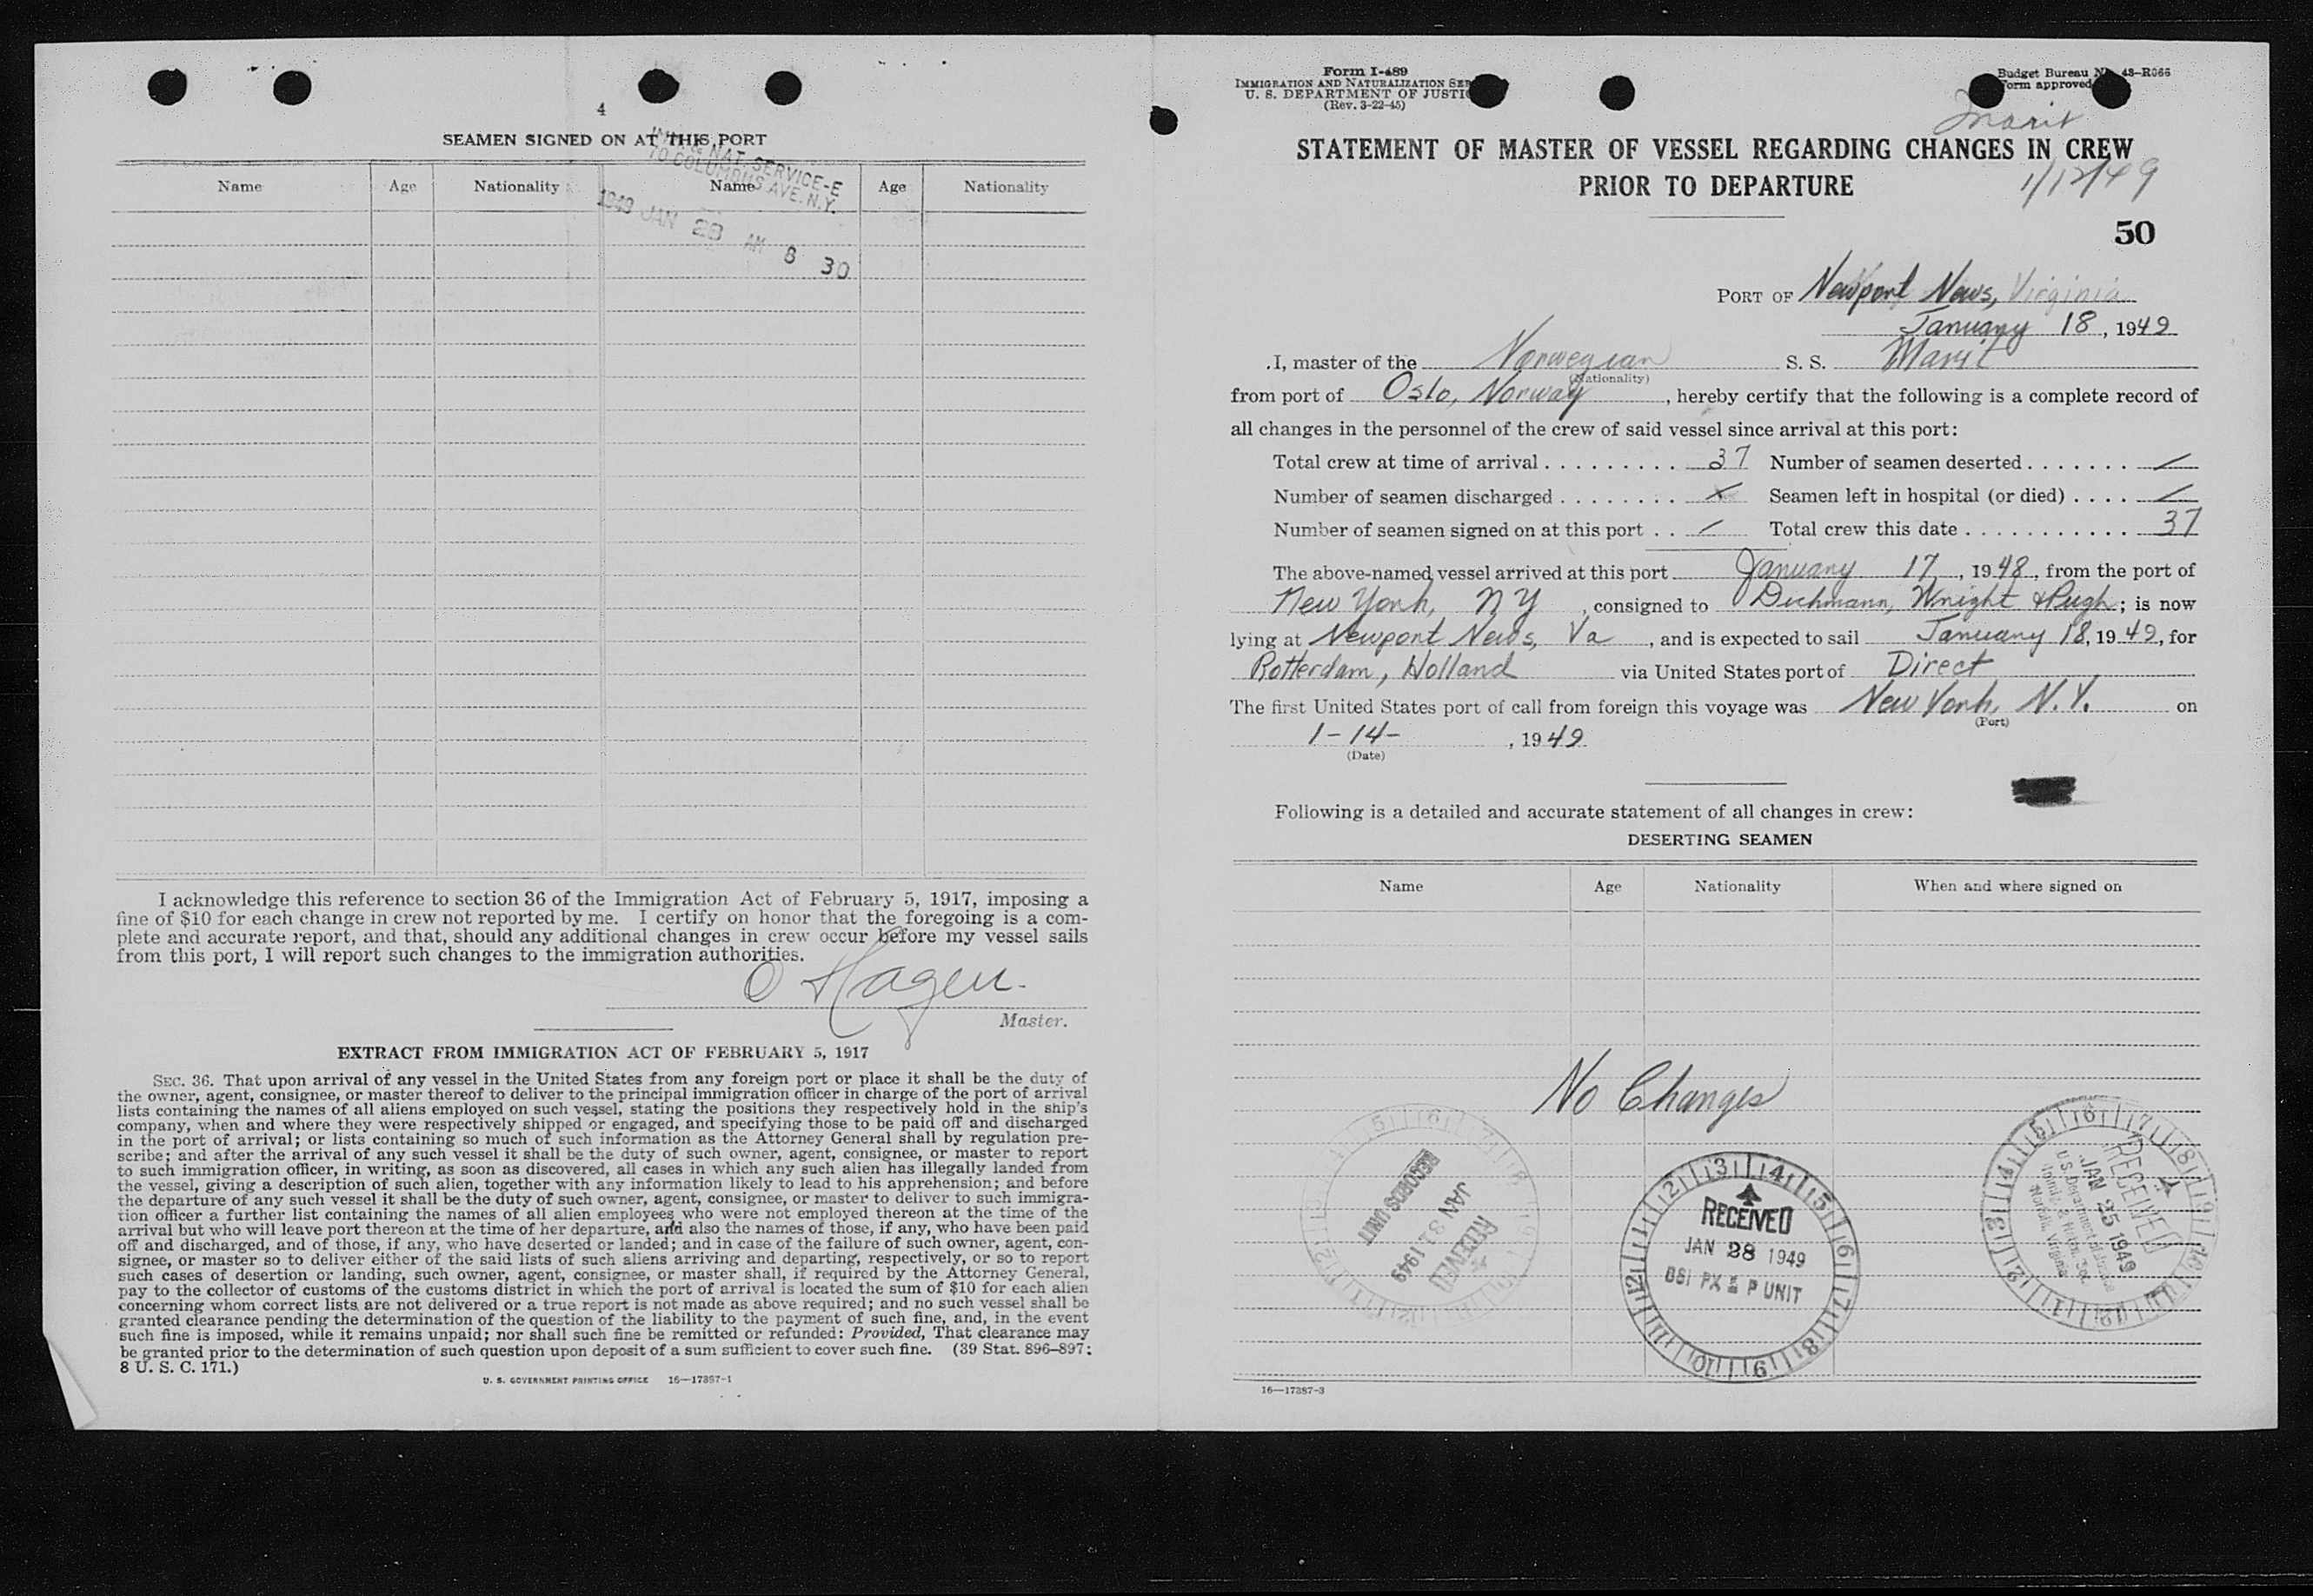 4
SEAMEN SIGNED ON AT THIS PORT
IMM & NAT. SERVICE-E
70 COLUMBUS AVE. N.Y.
1949 JAN 28 AM 8 30
Name Age Nationality Name Age Nationality
I acknowledge this reference to section 36 of the Immigration Act of February 5, 1917, imposing a
fine of $10 for each change in crew not reported by me. I certify on honor that the foregoing is a com-
plete and accurate report, and that, should any additional changes in crew occur before my vessel sails
from this port, I will report such changes to the immigration authorities.
O Hagen.
Master.
EXTRACT FROM IMMIGRATION ACT OF FEBRUARY 5, 1917
SEC. 36. That upon arrival of any vessel in the United States from any foreign port or place it shall be the duty of
the owner, agent, consignee, or master thereof to deliver to the principal immigration officer in charge of the port of arrival
lists containing the names of all aliens employed on such vessel, stating the positions they respectively hold in the ship's
company, when and where they were respectively shipped or engaged, and specifying those to be paid off and discharged
in the port of arrival; or lists containing so much of such information as the Attorney General shall by regulation pre-
scribe; and after the arrival of any such vessel it shall be the duty of such owner, agent, consignee, or master to report
to such immigration officer, in writing, as soon as discovered, all cases in which any such alien has illegally landed from
the vessel, giving a description of such alien, together with any information likely to lead to his apprehension; and before
the departure of any such vessel it shall be the duty of such owner, agent, consignee, or master to deliver to such immigra-
tion officer a further list containing the names of all alien employees who were not employed thereon at the time of the
arrival but who will leave port thereon at the time of her departure, and also the names of those, if any, who have been paid
off and discharged, and of those, if any, who have deserted or landed; and in case of the failure of such owner, agent, con-
signee, or master so to deliver either of the said lists of such aliens arriving and departing, respectively, or so to report
such cases of desertion or landing, such owner, agent, consignee, or master shall, if required by the Attorney General,
pay to the collector of customs of the customs district in which the port of arrival is located the sum of $10 for each alien
concerning whom correct lists are not delivered or a true report is not made as above required; and no such vessel shall be
granted clearance pending the determination of the question of the liability to the payment of such fine, and, in the event
such fine is imposed, while it remains unpaid; nor shall such fine be remitted or refunded: Provided, That clearance may
be granted prior to the determination of such question upon deposit of a sum sufficient to cover such fine. (39 Stat. 896-897;
8 U. S. C. 171.)
U. S. GOVERNMENT PRINTING OFFICE 16—17387-1
Form I-489
IMMIGRATION AND NATURALIZATION SER
U. S. DEPARTMENT OF JUSTI
(Rev. 3-22-45)
Budget Bureau N 43-R066
Form approved
Marit
STATEMENT OF MASTER OF VESSEL REGARDING CHANGES IN CREW
PRIOR TO DEPARTURE
1/12/49
50
PORT OF Newport News, Virginia
January 18, 1949
I, master of the Norwegian S. S. Marit
(Nationality)
from port of Oslo, Norway, hereby certify that the following is a complete record of
all changes in the personnel of the crew of said vessel since arrival at this port:
Total crew at time of arrival . . . . . . . . . 37 Number of seamen deserted . . . . . . . /
Number of seamen discharged . . . . . . . . x Seamen left in hospital (or died) . . . . /
Number of seamen signed on at this port . . / Total crew this date . . . . . . . . . . . 37
The above-named vessel arrived at this port January 17, 1948, from the port of
New York, NY, consigned to Dichmann, Wright & Pugh; is now
lying at Newport News, Va, and is expected to sail January 18, 1949, for
Rotterdam, Holland via United States port of Direct
The first United States port of call from foreign this voyage was New York, N.Y. on
(Port)
1-14-, 1949
(Date)
Following is a detailed and accurate statement of all changes in crew:
DESERTING SEAMEN
Name Age Nationality When and where signed on
No Changes
RECORDS UNIT
JAN 31 1949
RECEIVED
RECEIVED
JAN 28 1949
BSI PX & P UNIT
RECEIVED
JAN 25 1949
U.S. Department of Justice
Immi. & Natz. Ser.
Norfolk, Virginia
16—17387-3